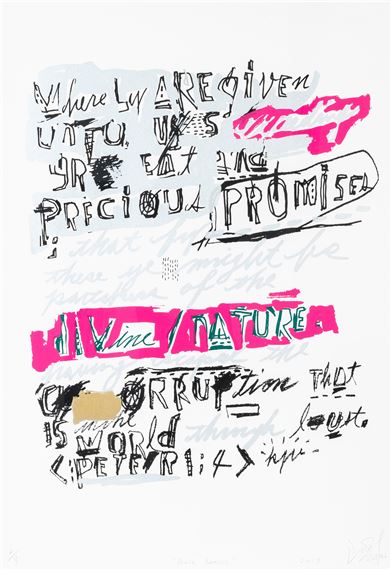 Where by ARE given
UNTO US
GREAT AND
PRECIOUS PROMISES
that by
these ye might be
partakers of the
DIVine / NATURE.
having the
CORRUPtion THAT
IS
WORLD through lust.
<:PETER 1:4>